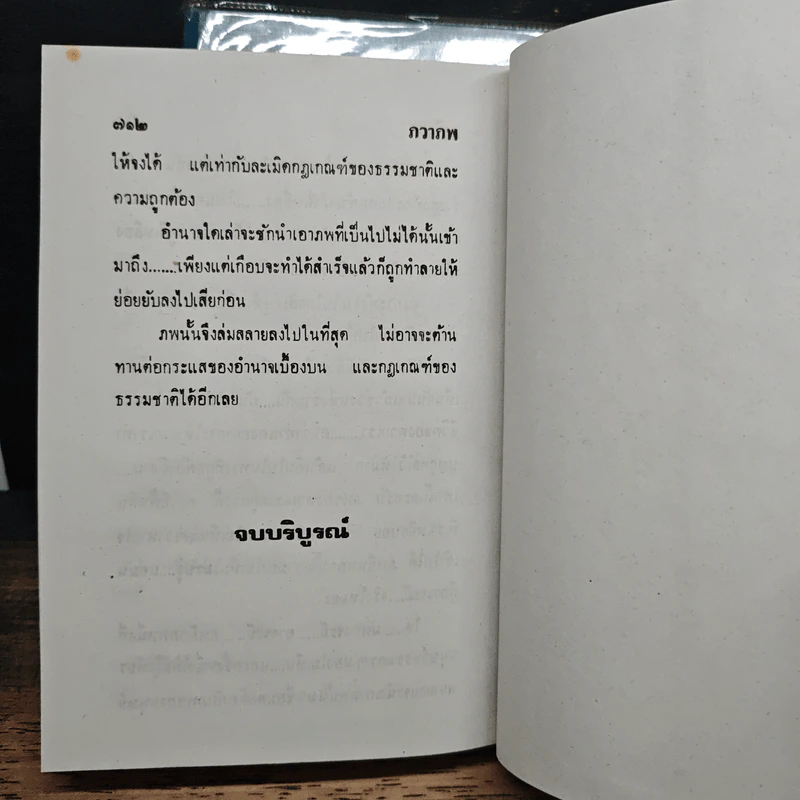 ๗๑๒ ภวาภพ
ให้จงได้ แต่เท่ากับละเมิดกฎเกณฑ์ของธรรมชาติและ
ความถูกต้อง
อำนาจใดเล่าจะชักนำเอาภพที่เป็นไปไม่ได้นั้นเข้า
มาถึง.......เพียงแต่เกือบจะทำได้สำเร็จแล้วก็ถูกทำลายให้
ย่อยยับลงไปเสียก่อน
ภพนั้นจึงล่มสลายลงไปในที่สุด ไม่อาจจะต้าน
ทานต่อกระแสของอำนาจเบื้องบน และกฎเกณฑ์ของ
ธรรมชาติได้อีกเลย
จบบริบูรณ์